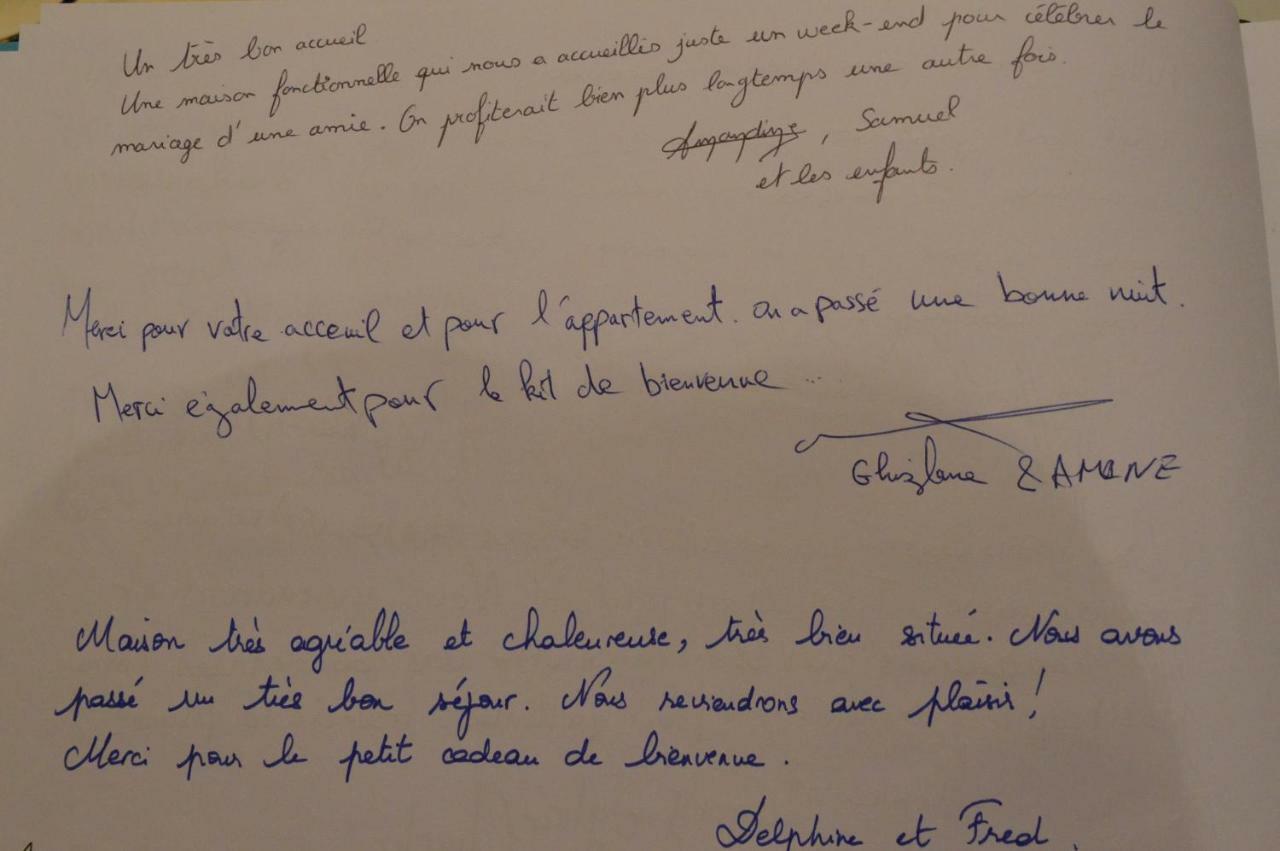 Un très bon accueil
Une maison fonctionnelle qui nous a accueillis juste un week-end pour célébrer le
mariage d'une amie. On profiterait bien plus longtemps une autre fois.
Amandine, Samuel
et les enfants.
Merci pour votre acceuil et pour l'appartement. On a passé une bonne nuit.
Merci également pour le kit de bienvenue ...
Ghizlane & AMINE
Maison très agréable et chaleureuse, très bien située. Nous avons
passé un très bon séjour. Nous reviendrons avec plaisir !
Merci pour le petit cadeau de bienvenue.
Delphine et Fred.